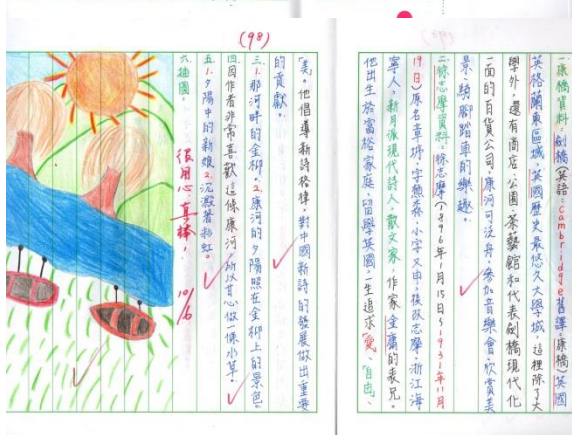 (98)
一、康橋資料:劍橋(英語:Cambridge舊譯:康橋)英國
英格蘭東區域,英國歷史最悠久大學城,這裡除了大
學外,還有商店、公園、茶藝館和代表劍橋現代化
一面的百貨公司,康河可泛舟,參加音樂會,欣賞美
景、騎腳踏車的樂趣。
二、徐志摩資料:徐志摩(1896年1月15日~1931年11月
19日)原名章垿,字槱森,小字又申,後改志摩。浙江海
寧人。新月派現代詩人,散文家,作家金庸的表兄。
他出生於富裕家庭,留學英國,一生追求「愛」、「自由」、
「美」。他倡導新詩格律,對中國新詩的發展做出重要
的貢獻。
三、1.那河畔的金柳。2.康河的夕陽照在金柳上的景色。
四、因作者非常喜歡這條康河,所以甘心做一條水草。
五、1.夕陽中的新娘2.沉澱著彩虹。
六、插圖。
很用心,真棒,10/6